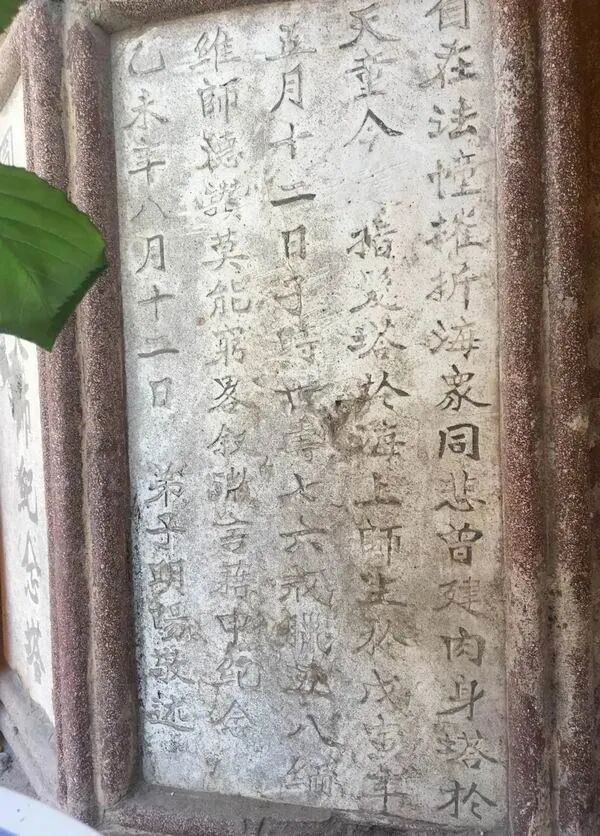 自在法幢摧折海衆同悲曾建肉身塔於
天童今 㨗髮塔於海上師生於戊寅年
五月十二日子時世壽七六戒臘五八緬
維師德讚莫能窮畧叙數言藉申紀念
乙未年八月十二日 弟子明暘敬述
師紀念塔